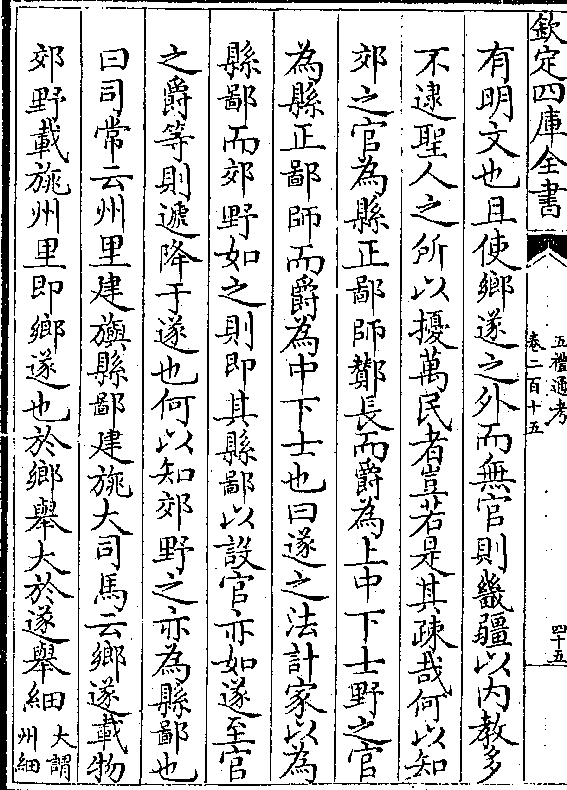 欽定四庫全書
五禮通考
卷二百十五
四十五
有明文也且使鄉遂之外而無官則畿疆以内教多
不逮聖人之所以擾萬民者豈若是其疎哉何以知
郊之官為縣正鄙師酇長而爵為上中下士野之官
為縣正鄙師而爵為中下士也曰遂之法計家以為
縣鄙而郊野如之則即其縣鄙以設官亦如遂至官
之爵等則遞降于遂也何以知郊野之亦為縣鄙也
曰司常云州里建旟縣鄙建旐大司馬云鄉遂載物
郊野載旐州里即鄉遂也於鄉舉大於遂舉細
大謂
州細